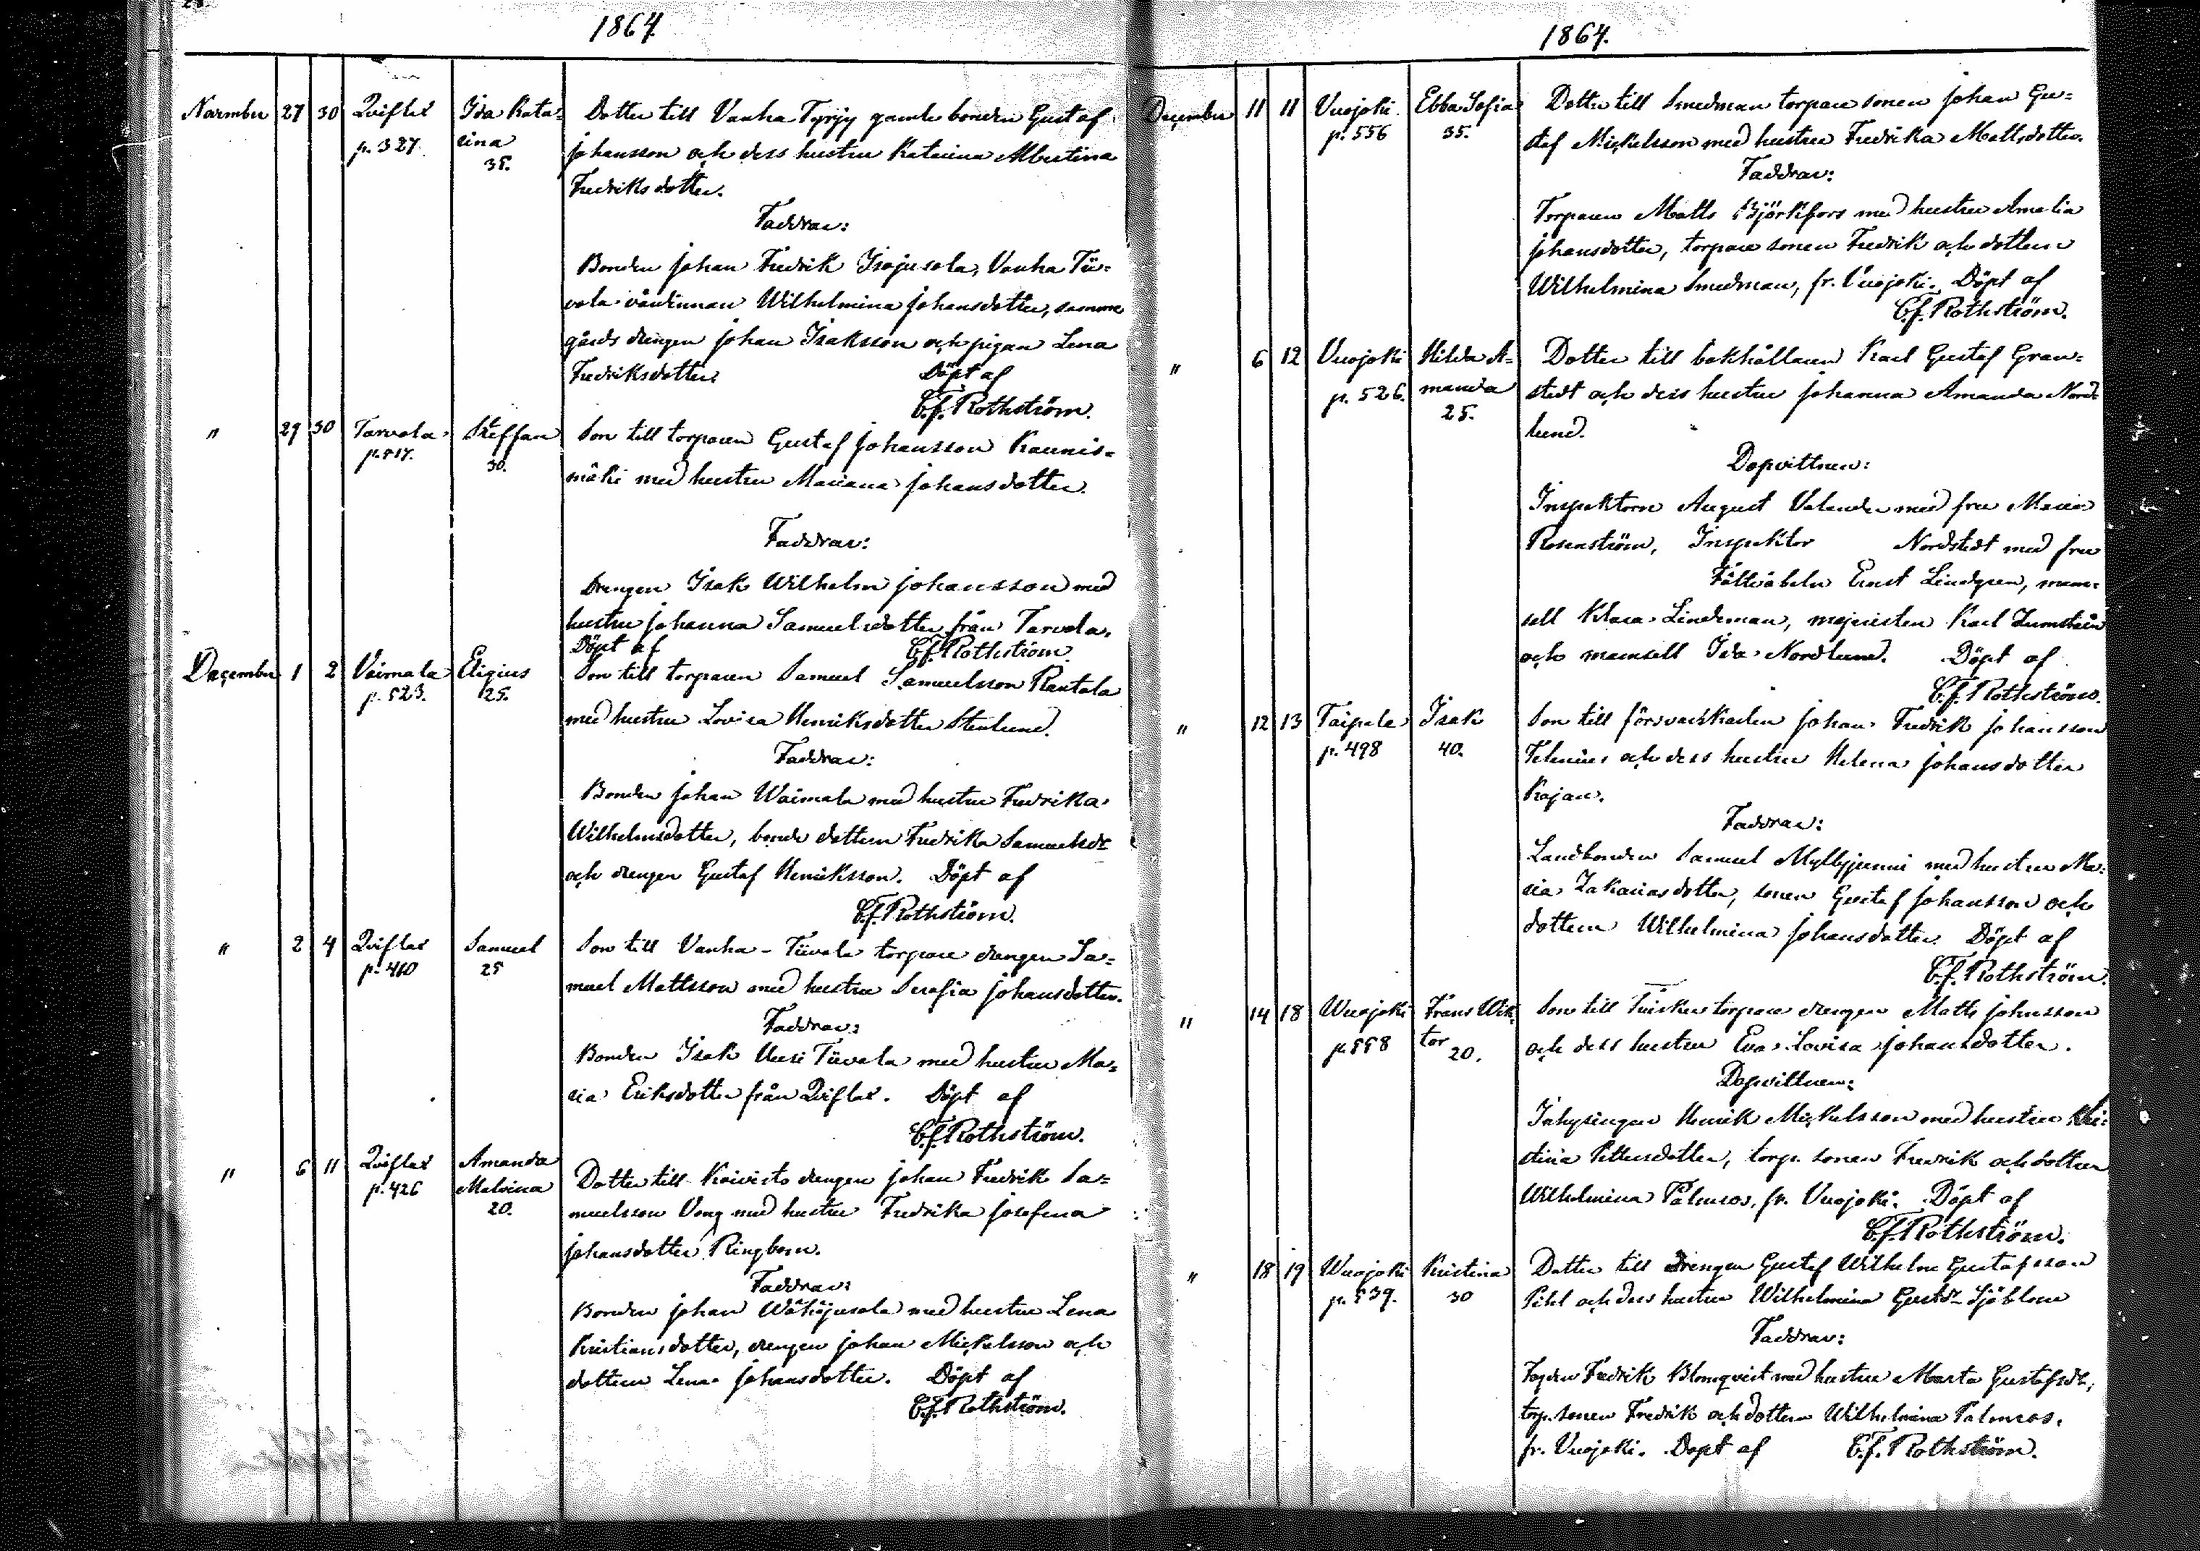 1864.
November 27 30 Qviflax Ida Kata= Dotter till Vanha Tyrjy gamle bonden Gustaf
p. 327. rina Johansson och dess hustru Katarina Albertina
35. Fredriksdotter.
Faddrar:
Bonden Johan Fredrik Isojusola, Vanha Tii=
vola värdinnan Wilhelmina Johansdotter, samma
gårds drengen Johan Isaksson och pigan Lena
Fredriksdotter. Döpt af
C.f. Rothström.
" 29 30 Tarvola Steffan Son till torparen Gustaf Johansson Kaunis=
p. 517. 30. mäki med hustru Mariana Johansdotter.
Faddrar:
Drengen Isak Wilhelm Johansson med
hustru Johanna Samuelsdotter från Tarvola.
Döpt af C.f. Rothström.
December 1 2 Väimala Eligius Son till torparen Samuel Samuelsson Rantala
p. 523. 25. med hustru Lovisa Henriksdotter Stenlund.
Faddrar:
Bonden Johan Waimala med hustru Fredrika
Wilhelmsdotter, bonde dottern Fredrika Samuelsdr
och drengen Gustaf Henriksson. Döpt af
C.f. Rothström.
" 2 4 Qviflax Samuel Son till Vanha-Tiivola torpare drengen Sa=
p. 460 25 muel Mattsson med hustru Serafia Johansdotter.
Faddrar:
Bonden Isak Uusi Tiivola med hustru Ma=
ria Eriksdotter från Qviflax. Döpt af
C.f. Rothström.
" 6 11 Qviflax Amanda
p. 426 Malvina Dotter till Koivisto drengen Johan Fredrik Sa=
20. muelsson Veng med hustru Fredrika Josefina
Johansdotter Ringbom.
Faddrar:
Bonden Johan Wähäjusola med hustru Lena
Kristiansdotter, drengen Johan Mickelsson och
dottern Lena Johansdotter. Döpt af
C.f. Rothström.
1864.
December 11 11 Vuojoki Ebba Sofia Dotter till Smedman torpare sonen Johan Gu=
p. 556 35. staf Mickelsson med hustru Fredrika Mattsdotter.
Faddrar:
Torparen Matts Björkfors med hustru Amalia
Johansdotter, torpare sonen Fredrik och dottern
Wilhelmina Smedman, fr. Vuojoki. Döpt af
C.f. Rothström.
" 6 12 Vuojoki Hilda A= Dotter till bokhållaren Karl Gustaf Gran=
p. 526. manda stedt och dess hustru Johanna Amanda Nord
25. lund.
Dopvittnen:
Inspektorn August Velander med fru Maria
Rosenström, Inspektor Nordstedt med fru
Fältväbeln Ernst Lindgren, mam=
sell Klara Lindeman, mejeristen Karl Zumstein
och mamsell Ida Nordlund. Döpt af
C.f. Rothström.
" 12 13 Taipale Isak Son till försvarskarlen Johan Fredrik Johansson
p. 498 40. Felenius och dess hustru Helena Johansdotter
Kajan.
Faddrar:
Landbonden Samuel Myllyjunni med hustru Ma=
ria Zakariasdotter, sonen Gustaf Johansson och
dottern Wilhelmina Johansdotter. Döpt af
C.f. Rothström.
" 14 18 Wuojoki Frans Wik= Son till torpare drengen Matts Johnsson
p. 558 tor och dess hustru Eva Lovisa Johansdotter.
20.
Dopvittnen:
Inhysingen Henrik Mickelsson med hustru Kri=
stina Pettersdotter, torp. sonen Fredrik och dottren
Wilhelmina Palmros, fr. Vuojoki. Döpt af
C.f. Rothström.
" 18 19 Wuojoki Kristina Dotter till Drengen Gustaf Wilhelm Gustafsson
p. 539. 30 Pihl och dess hustru Wilhelmina Gustdr Sjöblom
Faddrar:
Fogden Fredrik Blomqvist med hustru Marta Gustafsdr,
torp. sonen Fredrik och dottern Wilhelmina Palmros.
fr. Vuojoki. Döpt af C.f. Rothström.